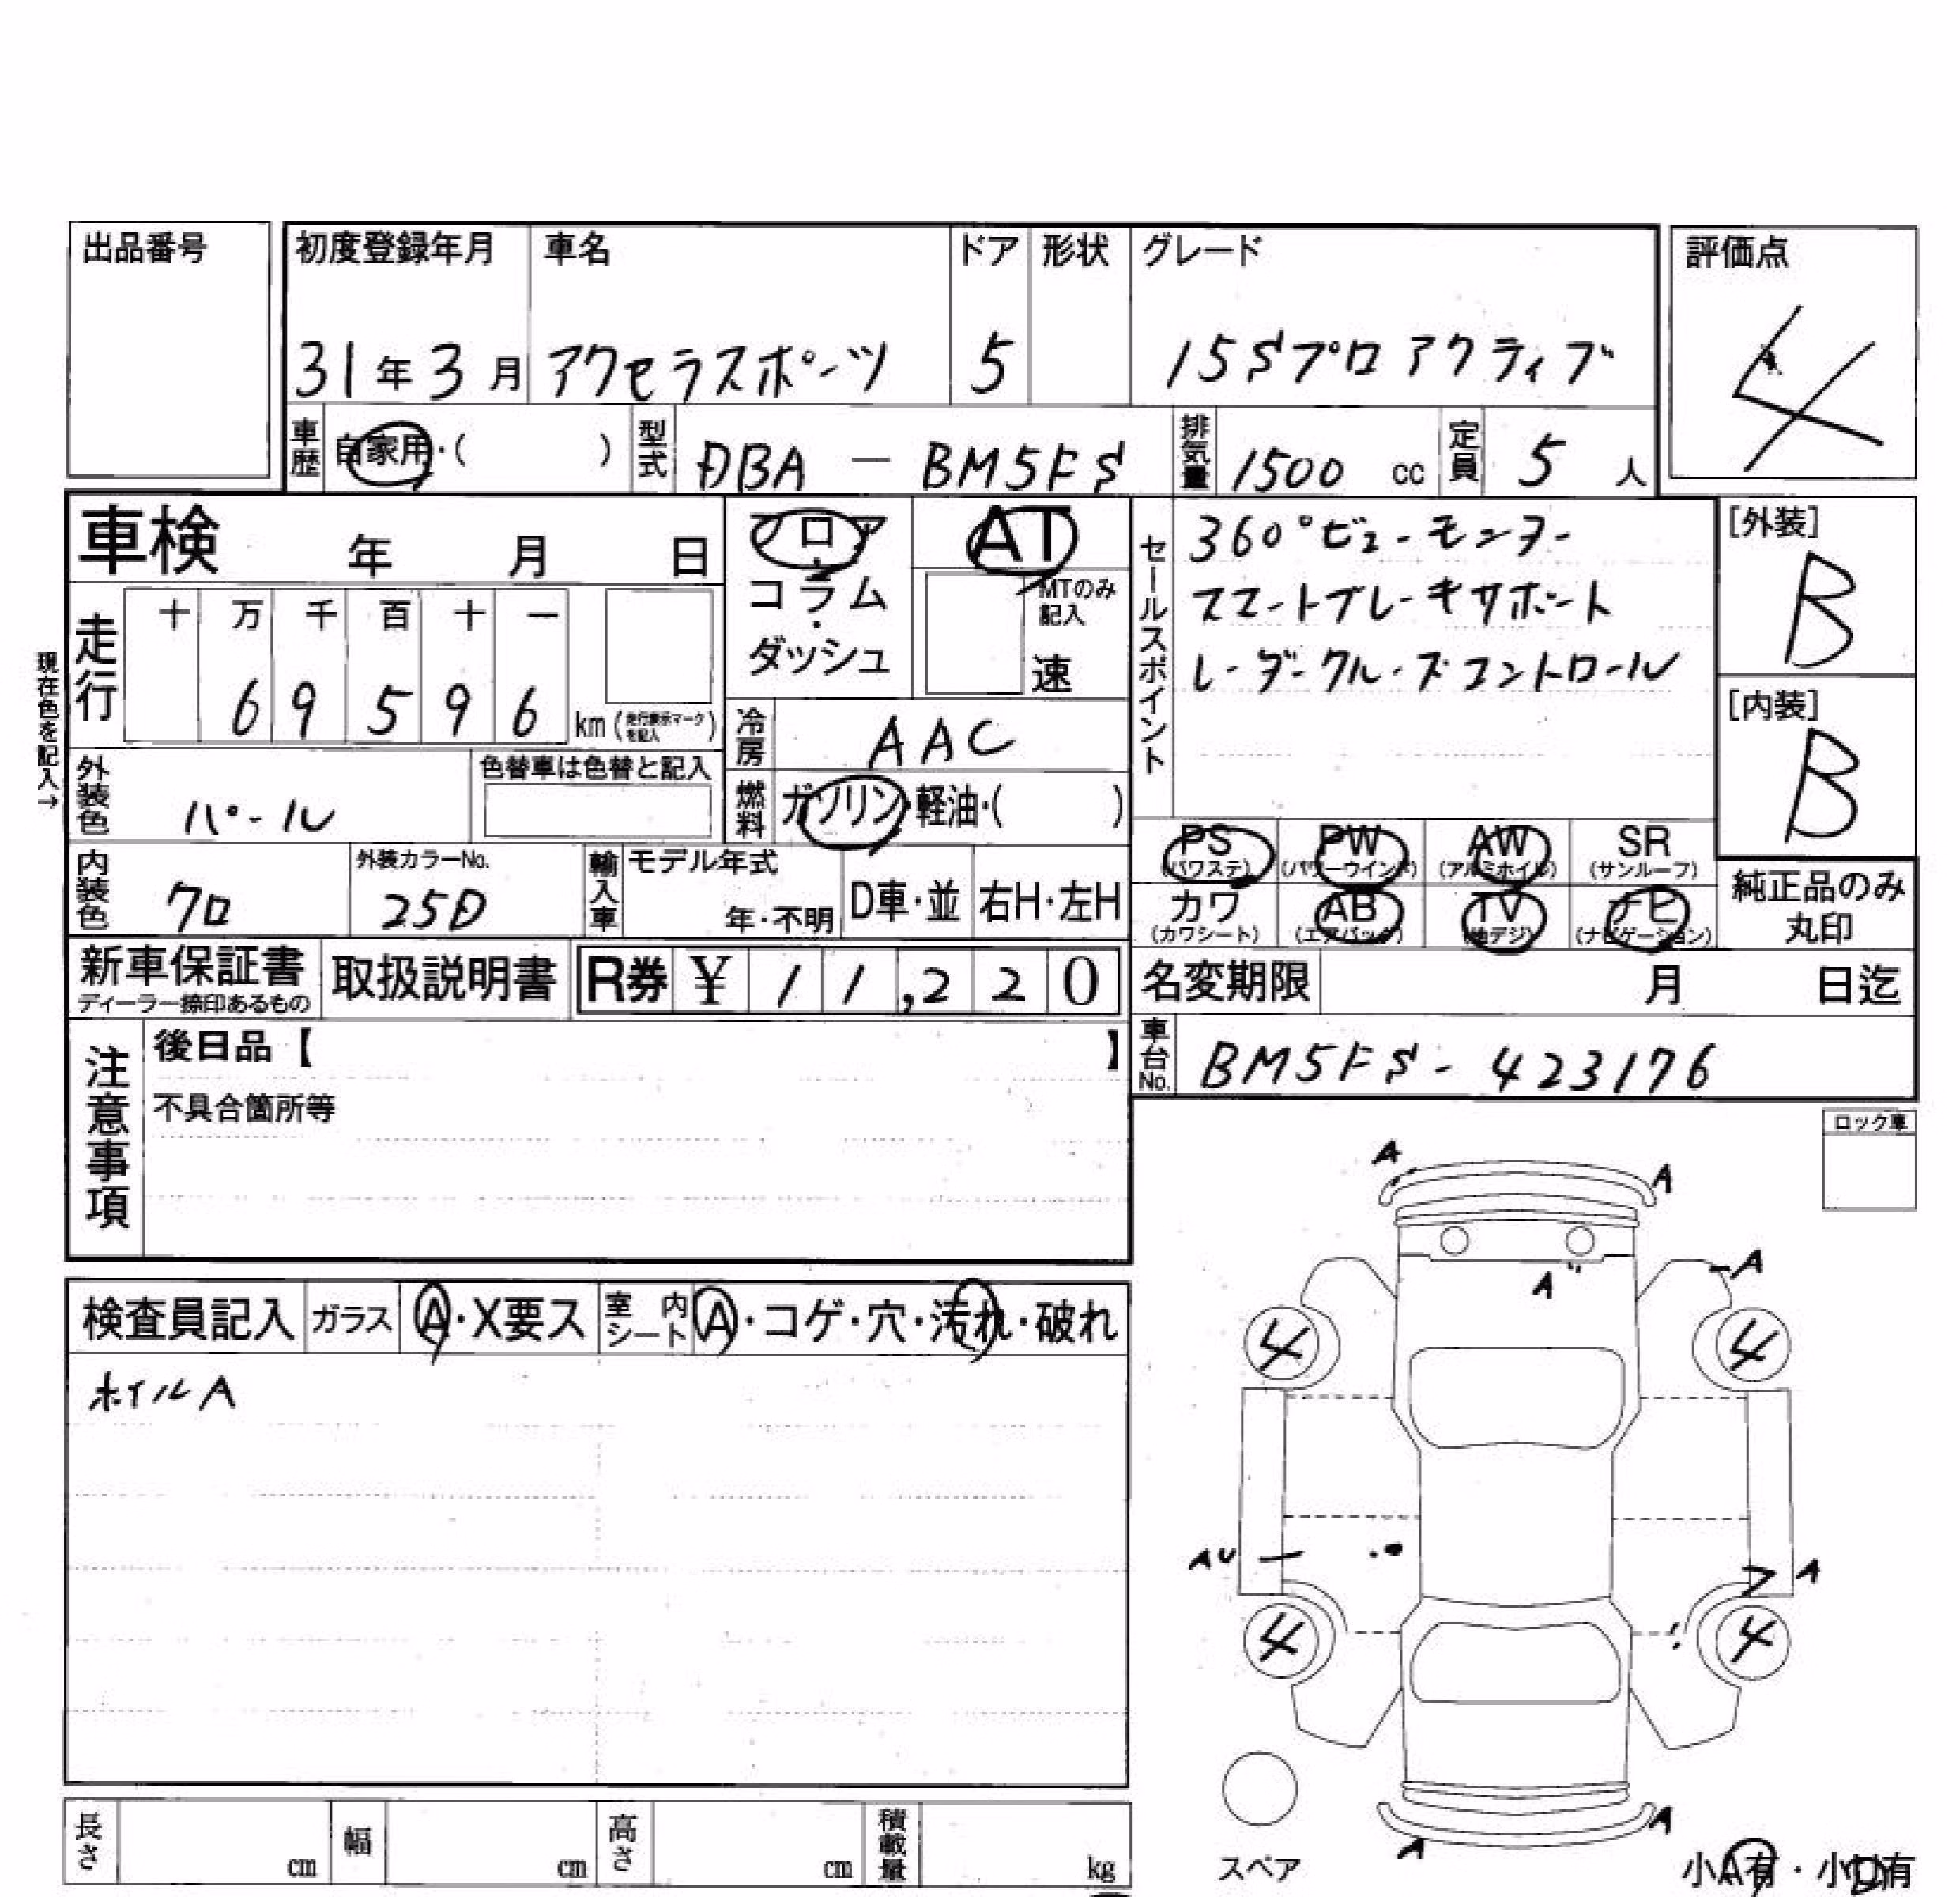 出品番号
初度登録年月 車名 ドア 形状 グレード 評価点
31年3月 アクセラスポーツ 5 15Sプロアクティブ 4
車歴 自家用・( ) 型式 DBA - BM5FS 排気量 1500 cc 定員 5 人
車検 年 月 日
フロア・コラム・ダッシュ
AT
MTのみ記入
速
現在色を記入→
走行 十 万 千 百 十 一
6 9 5 9 6 km (走行表示マークを記入)
冷房 AAC
燃料 ガソリン・軽油・( )
外装色 パール
色替車は色替と記入
内装色 クロ
外装カラーNo. 25D
輸入車 モデル年式 年・不明 D車・並 右H・左H
セールスポイント
360°ビューモニター
スマートブレーキサポート
レーダークルーズコントロール
[外装] B
[内装] B
PS (パワステ) PW (パワーウインド) AW (アルミホイル) SR (サンルーフ)
カワ (カワシート) AB (エアバック) TV (地デジ) ナビ (ナビゲーション)
純正品のみ丸印
新車保証書 ディーラー捺印あるもの
取扱説明書
R券 ¥ 11,220
名変期限 月 日迄
車台No. BM5FS-423176
注意事項
後日品【 】
不具合箇所等
ロック車
検査員記入 ガラス A・X要ス 室内シート A・コゲ・穴・汚れ・破れ
ホイルA
A A
A
A
4 4
AU A
4 4
A
A
スペア
小A有・小U有
長さ cm 幅 cm 高さ cm 積載量 kg